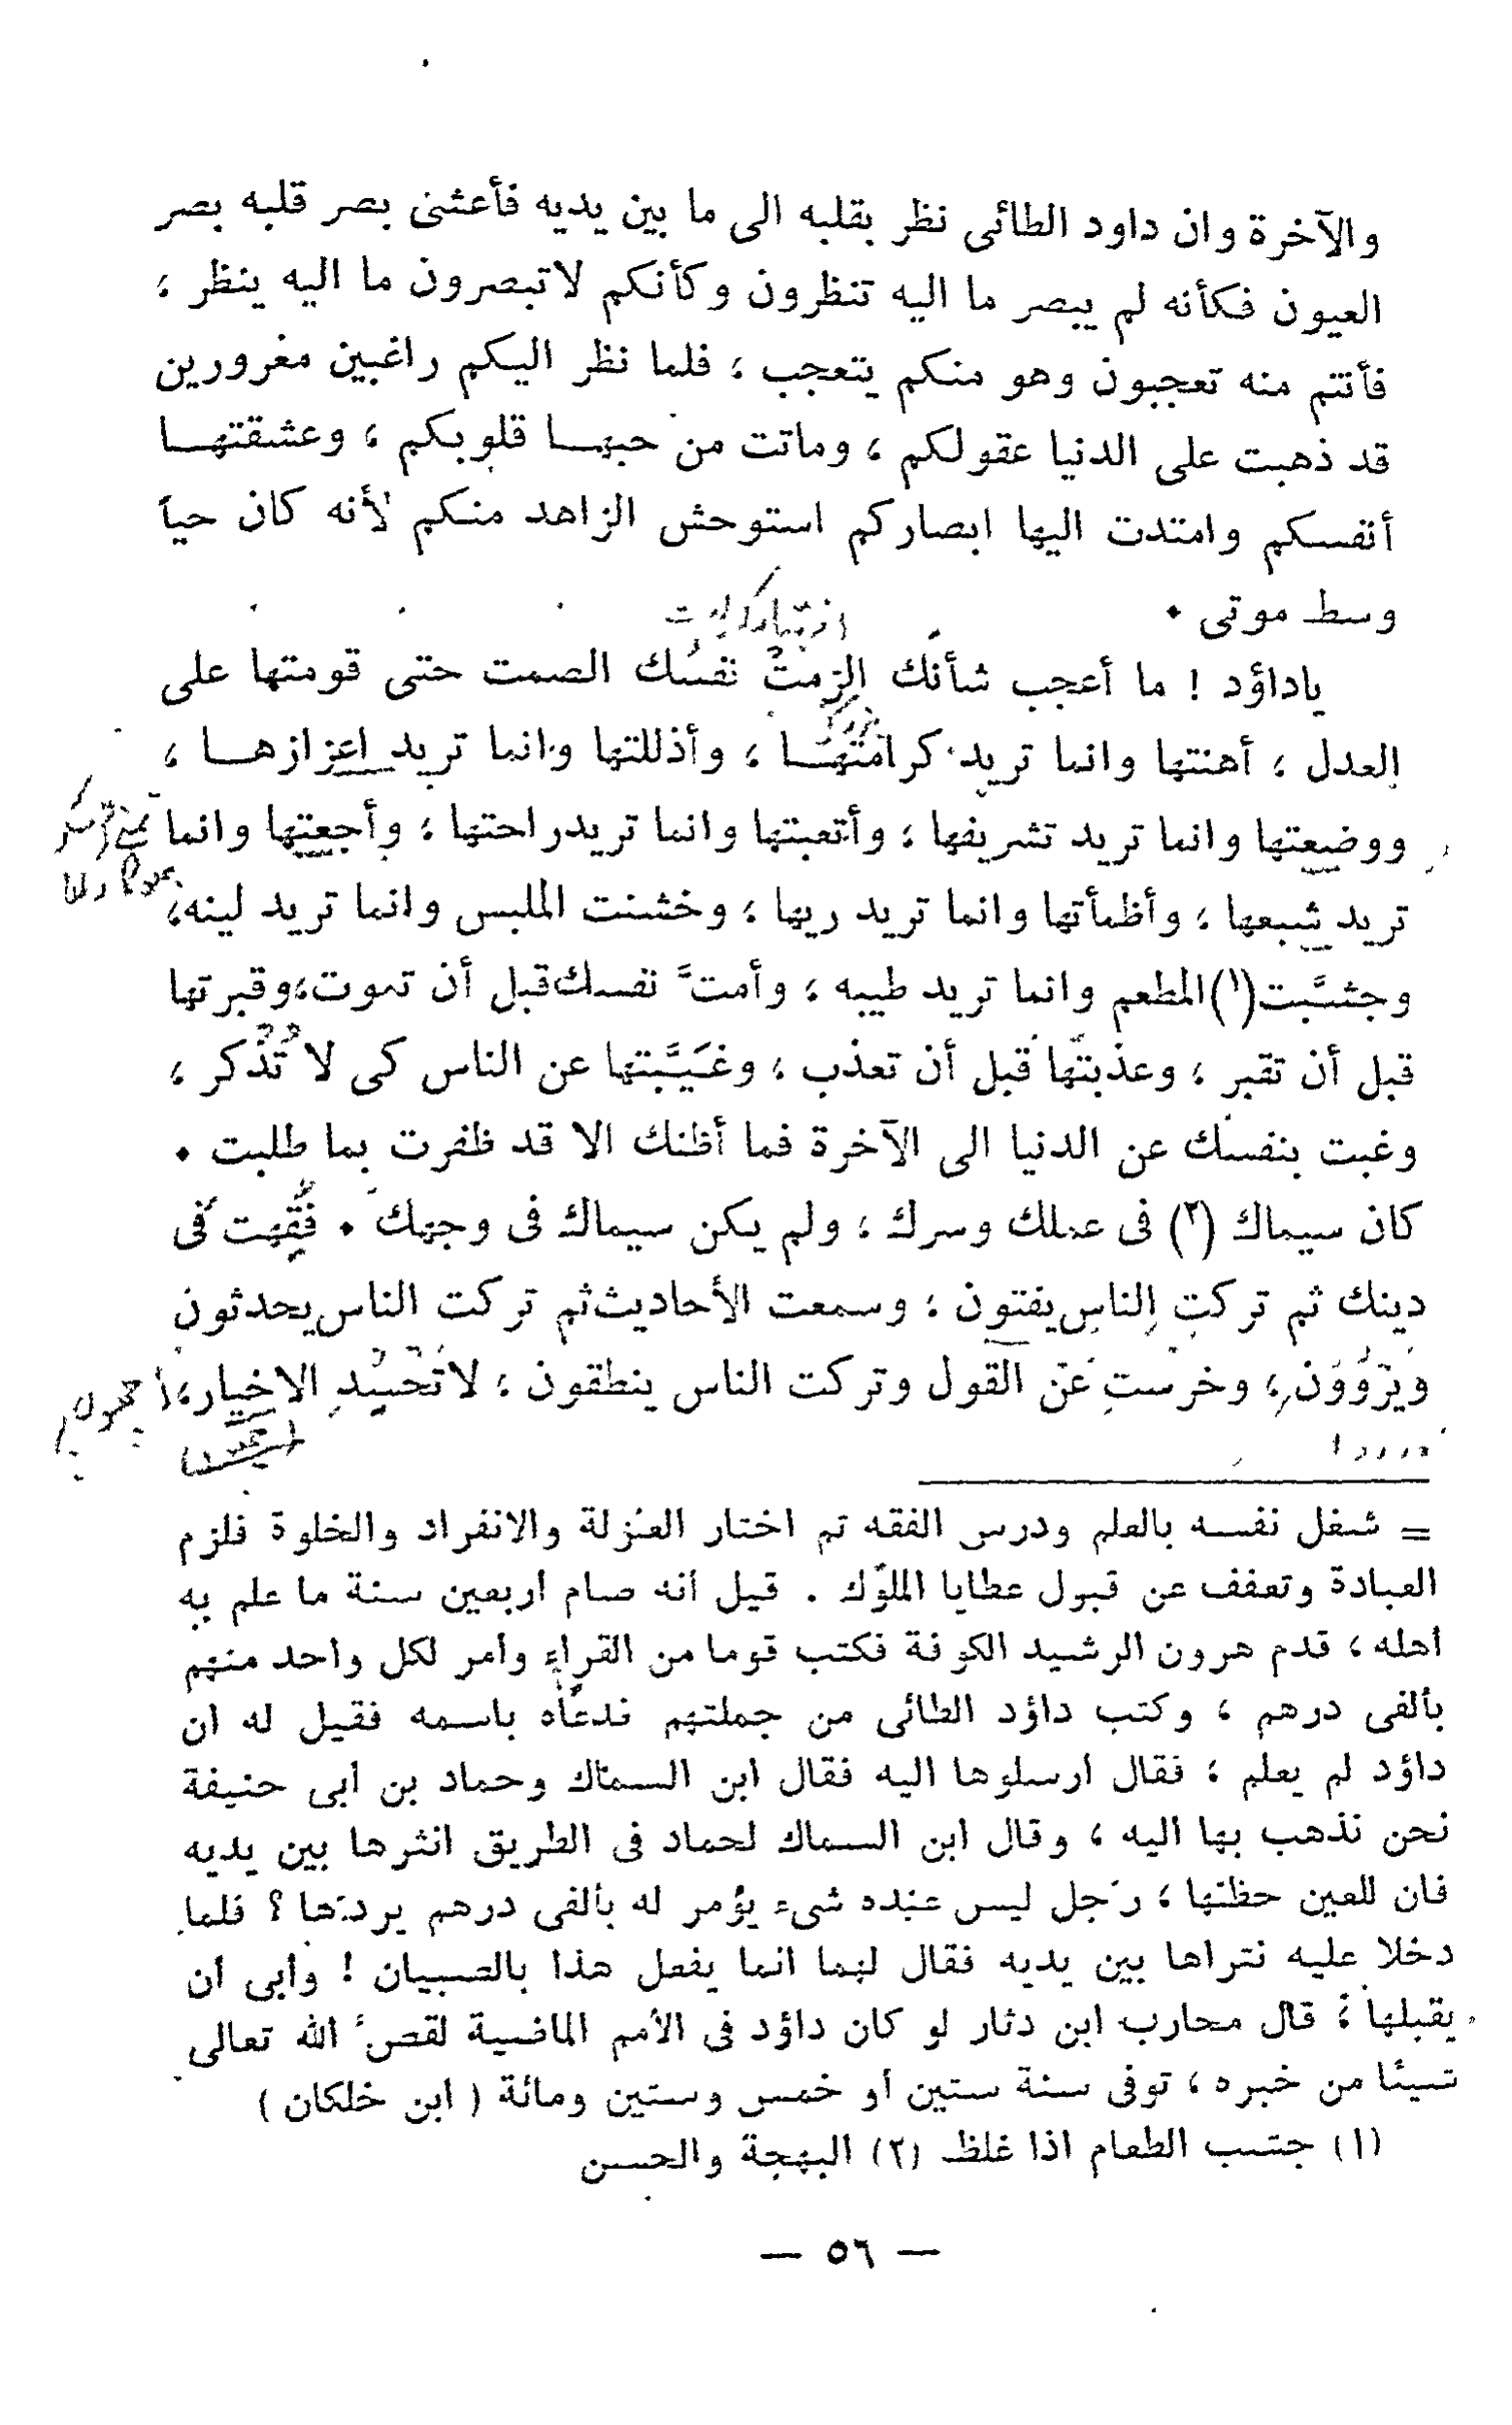 والآخرة وان داود الطائى نظر بقلبه الى ما بين يديه فأعشى بصر قلبه بصر
العيون فكأنه لم يبصر ما اليه تنظرون وكأنكم لاتبصرون ما اليه ينظر ؛
فأنتم منه تعجبون وهو منكم يتعجب ؛ فلما نظر اليكم راغبين مغرورين
قد ذهبت على الدنيا عقولكم ، وماتت من حبهـا قلوبكم ، وعشقتهـا
أنفسكم وامتدت اليها ابصاركم استوحش الزاهد منكم لأنه كان حياً
وسط موتى ٠
ياداؤد ! ما أعجب شأنك الزمت نفسك الصمت حتى قومتها على
العدل ؛ أهنتها وانما تريد كرامتهـا ، وأذللتها وانما تريد اعزازهـا ،
ووضعتها وانما تريد تشريفها ؛ وأتعبتها وانما تريدراحتها ؛ وأجعتها وانما
تريد شبعها ؛ وأظمأتها وانما تريد ريها ؛ وخشنت الملبس وانما تريد لينه،
وجشّبت(١)المطعم وانما تريد طيبه ؛ وأمتَّ نفسك قبل أن تموت،وقبرتها
قبل أن تقبر ؛ وعذبتها قبل أن تعذب ؛ وغَيَّبتها عن الناس كى لا تُذْكر ،
وغبت بنفسك عن الدنيا الى الآخرة فما أظنك الا قد ظفرت بما طلبت ٠
كان سيماك (٢) فى عملك وسرك ؛ ولم يكن سيماك فى وجهك ٠ فُقِّهت فى
دينك ثم تركت الناس يفتون ؛ وسمعت الأحاديث ثم تركت الناس يحدثون
ويَرْوُوْن ، وخرست عن القول وتركت الناس ينطقون ؛ لاتَحْسُدِ الاخيار،
= شغل نفسه بالعلم ودرس الفقه ثم اختار العزلة والانفراد والخلوة فلزم
العبادة وتعفف عن قبول عطايا الملوك . قيل أنه صام أربعين سنة ما علم به
أهله ، قدم هرون الرشيد الكوفة فكتب قوما من القراء وأمر لكل واحد منهم
بألفى درهم ، وكتب داؤد الطائى من جملتهم فدعاه باسمه فقيل له ان
داؤد لم يعلم ؛ فقال ارسلوها اليه فقال ابن السماك وحماد بن أبى حنيفة
نحن نذهب بها اليه ، وقال ابن السماك لحماد فى الطريق انثرها بين يديه
فان للعين حظتها ، رجل ليس عنده شىء يؤمر له بألفى درهم يردّها ؟ فلما
دخلا عليه نثراها بين يديه فقال لهما انما يفعل هذا بالصبيان ! وأبى أن
يقبلها ؛ قال محارب ابن دثار لو كان داؤد فى الأمم الماضية لقصّ الله تعالى
شيئا من خبره ، توفى سنة ستين أو خمس وستين ومائة ( ابن خلكان )
(١) جشب الطعام اذا غلظ (٢) البهجة والحسن
— ٥٦ —